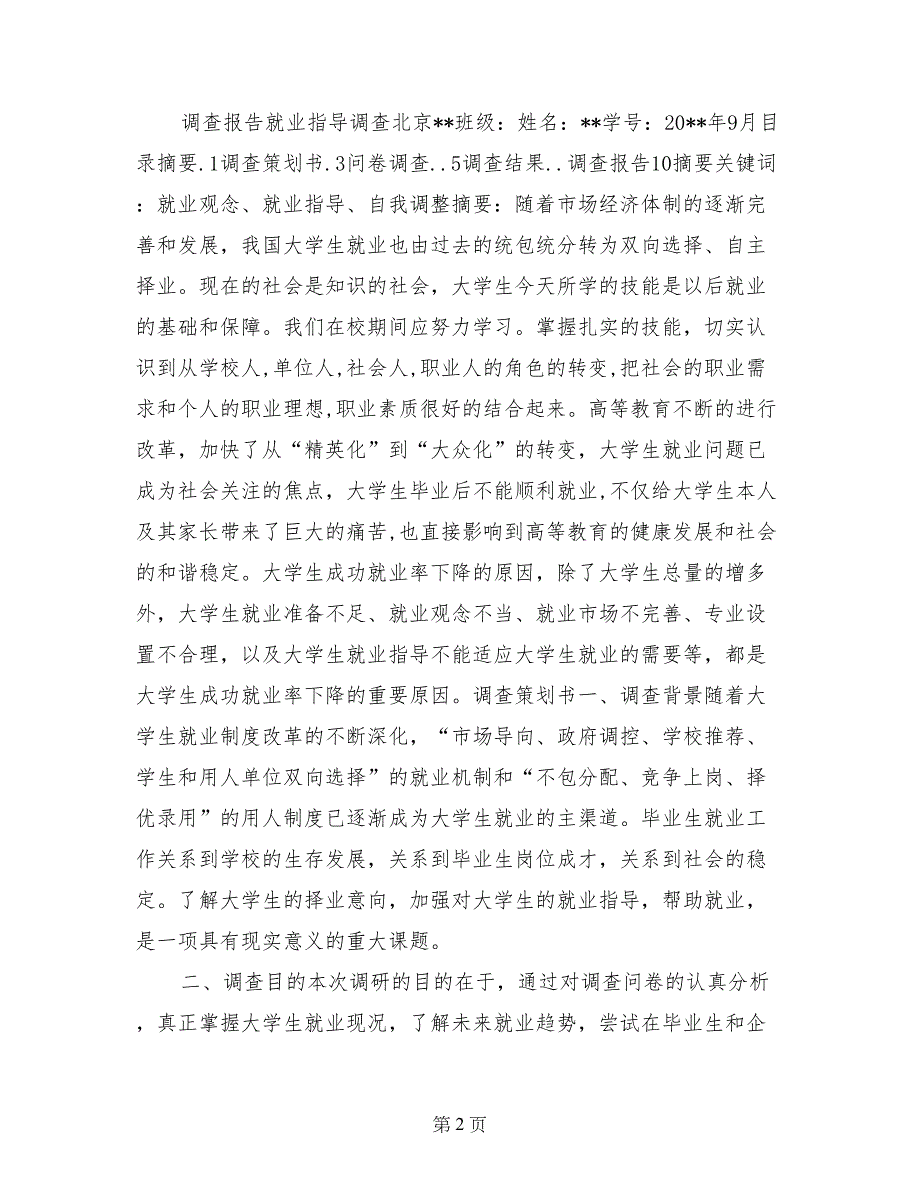 调查报告就业指导调查北京**班级：姓名：**学号：20**年9月目
录摘要.1调查策划书.3问卷调查..5调查结果..调查报告10摘要关键词
：就业观念、就业指导、自我调整摘要：随着市场经济体制的逐渐完
善和发展，我国大学生就业也由过去的统包统分转为双向选择、自主
择业。现在的社会是知识的社会，大学生今天所学的技能是以后就业
的基础和保障。我们在校期间应努力学习。掌握扎实的技能，切实认
识到从学校人,单位人,社会人,职业人的角色的转变,把社会的职业需
求和个人的职业理想,职业素质很好的结合起来。高等教育不断的进行
改革，加快了从“精英化”到“大众化”的转变，大学生就业问题已
成为社会关注的焦点，大学生毕业后不能顺利就业,不仅给大学生本人
及其家长带来了巨大的痛苦,也直接影响到高等教育的健康发展和社会
的和谐稳定。大学生成功就业率下降的原因，除了大学生总量的增多
外，大学生就业准备不足、就业观念不当、就业市场不完善、专业设
置不合理，以及大学生就业指导不能适应大学生就业的需要等，都是
大学生成功就业率下降的重要原因。调查策划书一、调查背景随着大
学生就业制度改革的不断深化，“市场导向、政府调控、学校推荐、
学生和用人单位双向选择”的就业机制和“不包分配、竞争上岗、择
优录用”的用人制度已逐渐成为大学生就业的主渠道。毕业生就业工
作关系到学校的生存发展，关系到毕业生岗位成才，关系到社会的稳
定。了解大学生的择业意向，加强对大学生的就业指导，帮助就业，
是一项具有现实意义的重大课题。
二、调查目的本次调研的目的在于，通过对调查问卷的认真分析
，真正掌握大学生就业现况，了解未来就业趋势，尝试在毕业生和企
第 2 页